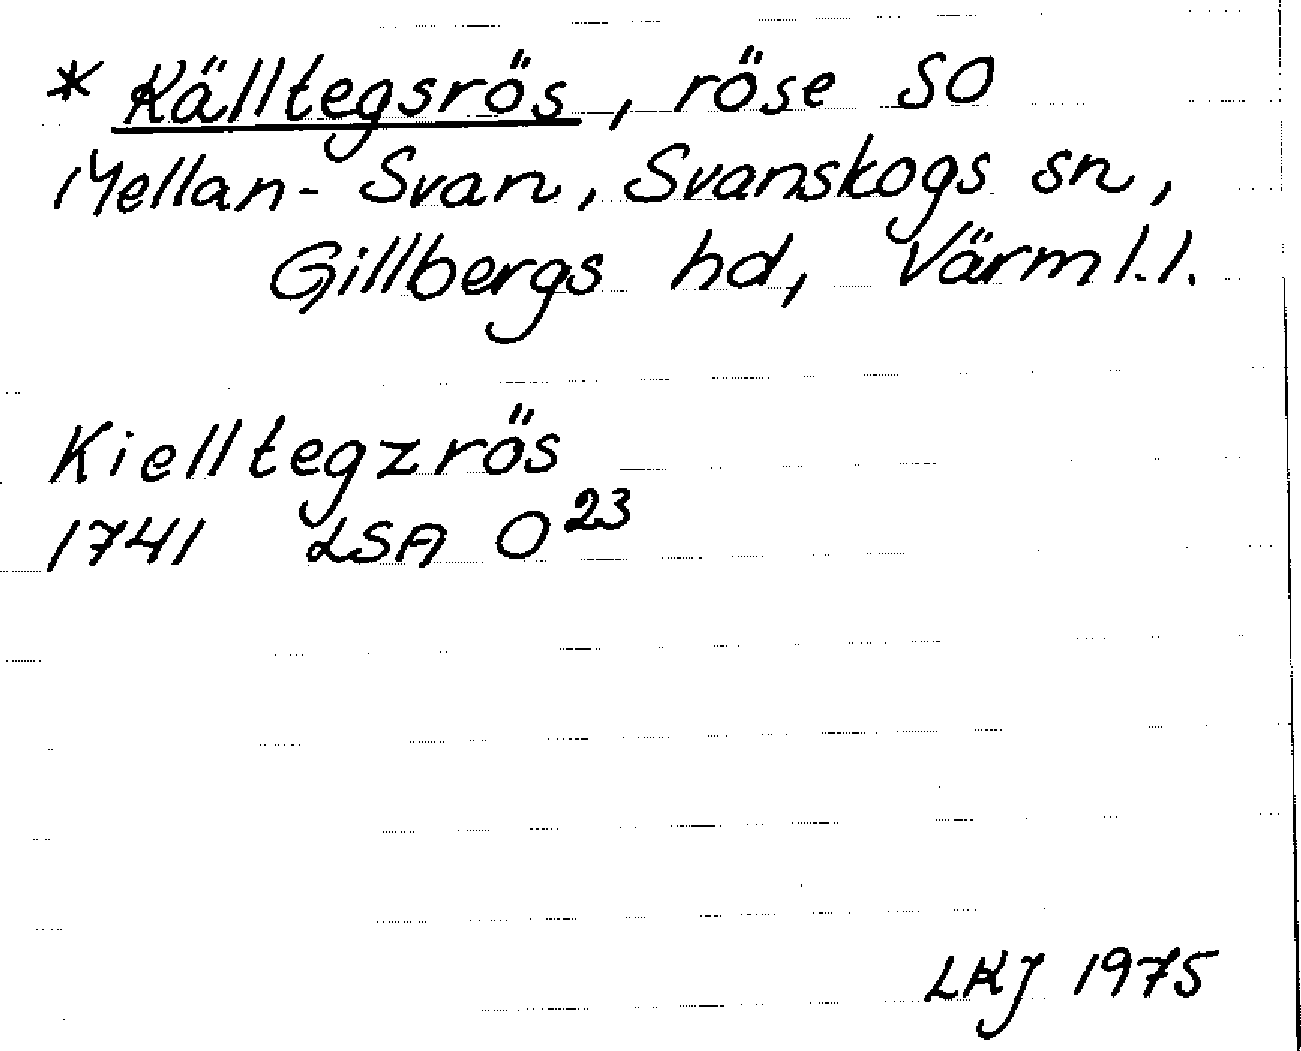 * Källtegsrös, röse SO
Mellan-Svan, Svanskogs sn,
Gillbergs hd, Värml.l.
Kielltegzrös
1741 LSA O²³
LKJ 1975